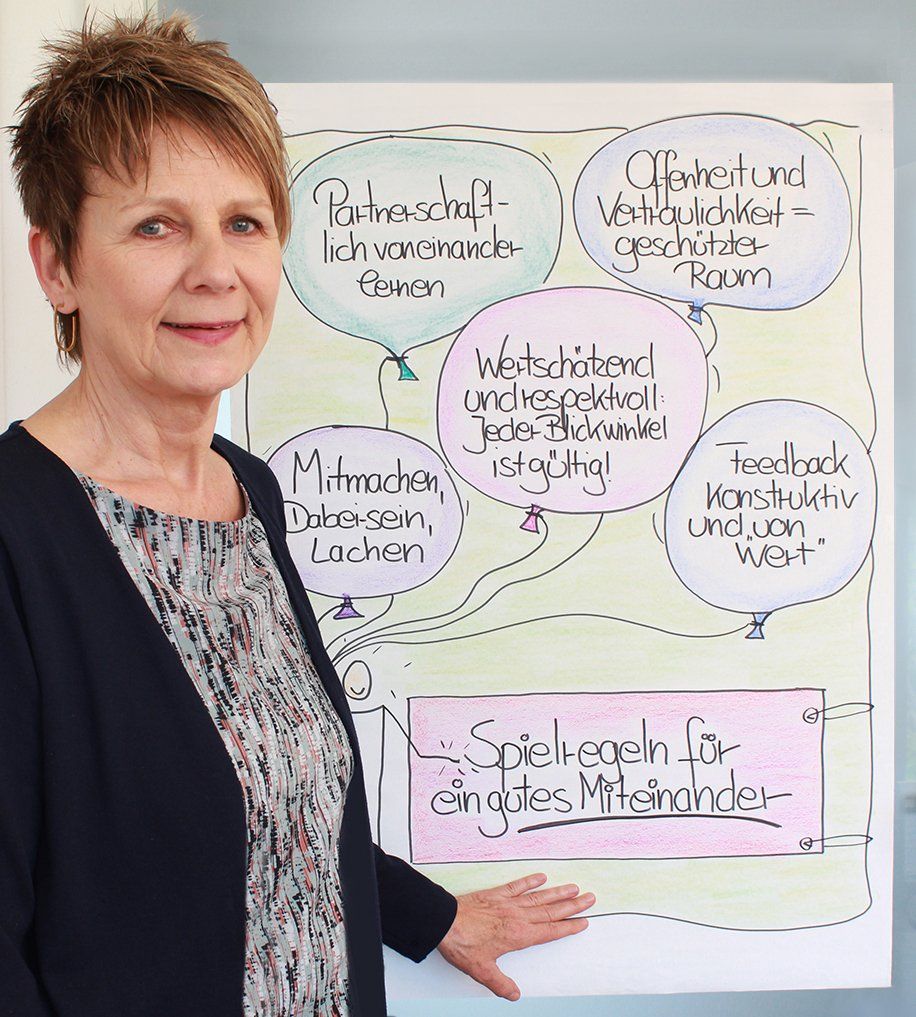 Partnerschaft-
lich voneinander
lernen
Offenheit und
Vertraulichkeit =
geschützter
Raum
Wertschätzend
und respektvoll:
Jeder Blickwinkel
ist gültig!
Mitmachen,
Dabei sein,
Lachen
Feedback
konstruktiv
und „von
Wert"
Spielregeln für
ein gutes Miteinander